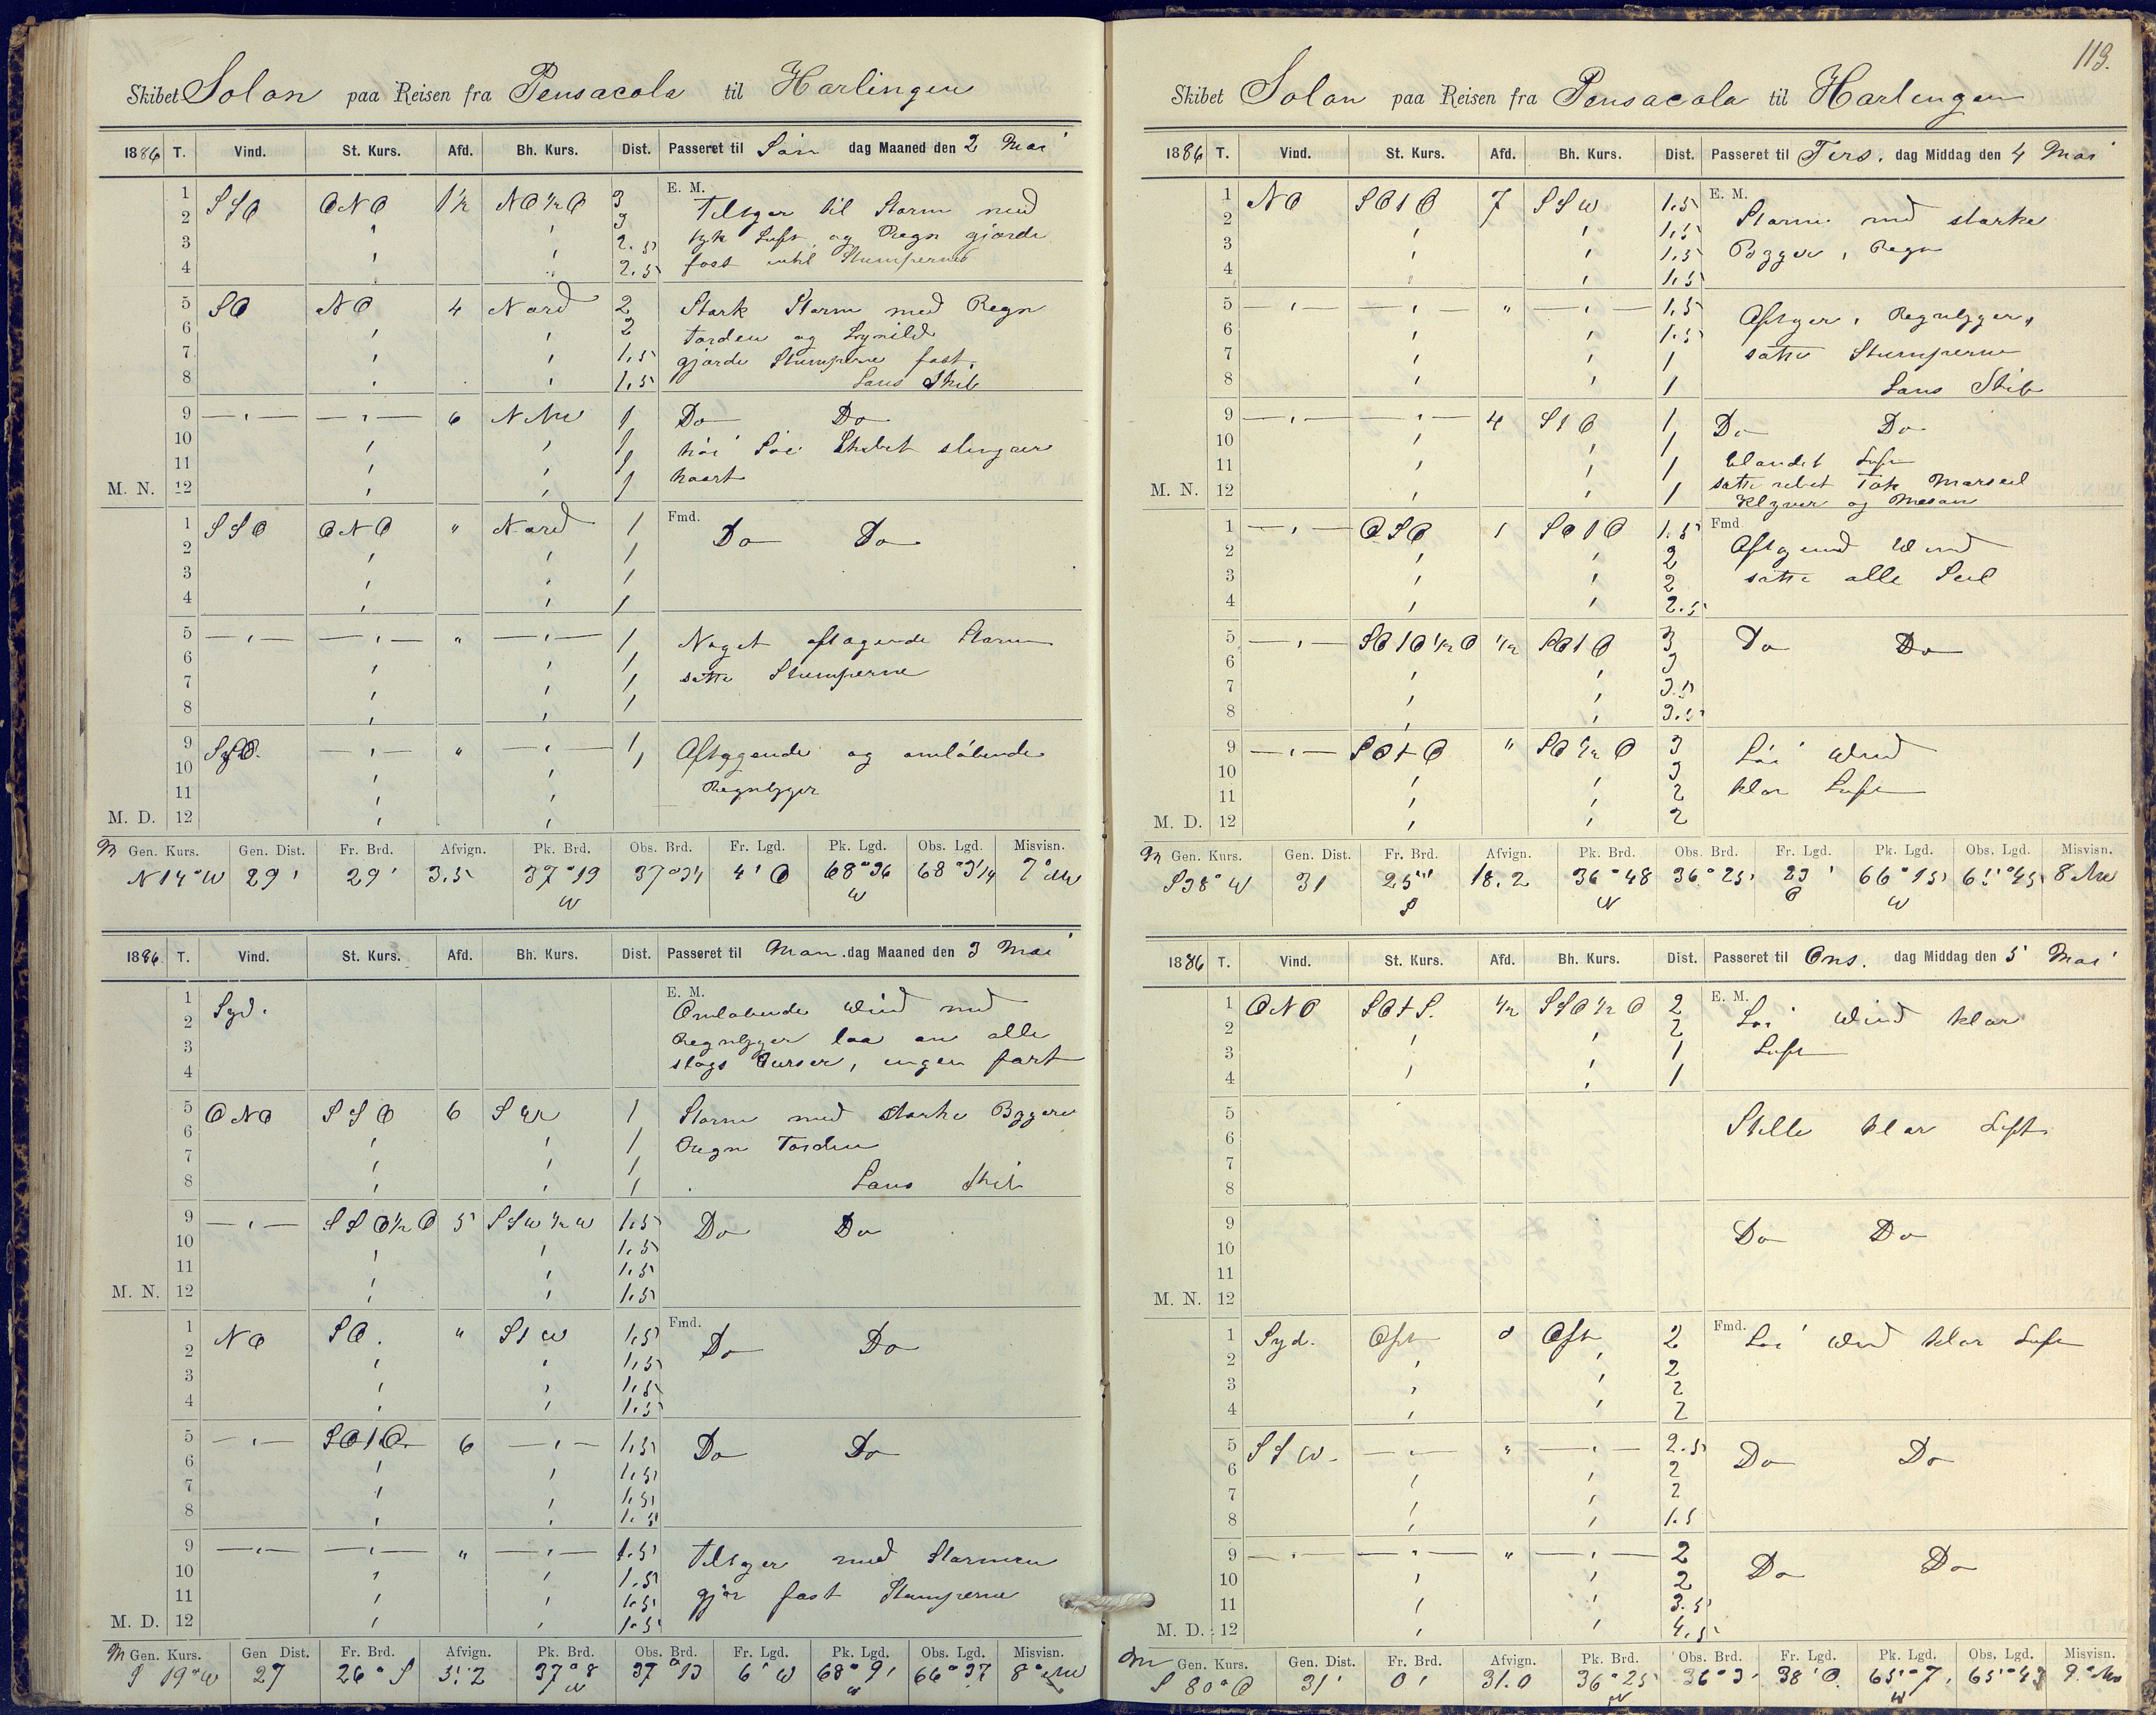 Skibet Solon paa Reisen fra Pensacola til Harlingen
1886 T. Vind. St. Kurs. Afd. Bh. Kurs. Dist. Passeret til Søn dag Maaned den 2 Mai
E. M.
1 SSO ONO 1½ NO½O 3 Tiltager til Storm med
2 " " 3 tyk Luft og Regn gjorde
3 " " 2.5 fast
4 " " 2.5
5 SO NO 4 Nord 2 Stark Storm med Regn
6 " " 2 Torden og Lynild
7 " " 1,5 gjorde Stumperne fast
8 " " 1,5 Lens Skib
9 — " — — " — 6 NNW 1 Do Do
10 " " 1 høi Søe Skibet slingrer
11 " " 1 haart
M. N. 12 " " 1
Fmd.
1 SSO ONO " Nord 1 Do Do
2 " " 1
3 " " 1
4 " " 1
5 — " — — " — " — " — 1 Noget aftagende Storm
6 " " 1 satte Stumperne
7 " " 1
8 " " 1
9 — " — " — " — 1 Aftagende og omløbende
10 " " 1 Regnbyger
11 " "
M. D. 12 " "
M Gen. Kurs. Gen. Dist. Fr. Brd. Afvign. Pk. Brd. Obs. Brd. Fr. Lgd. Pk. Lgd. Obs. Lgd. Misvisn.
N 14° W 29' 29' 3.5 37°19 4' O 68°36 W 7° NW
1886 T. Vind. St. Kurs. Afd. Bh. Kurs. Dist. Passeret til Man. dag Maaned den 3 Mai
E. M.
1 Syd. Omløbende Wind med
2 Regnbyger laa an alle
3 slags Curser, ingen fart
4
5 ONO SSO 6 SW 1 Storm med starke Bygere
6 " " 1 Regn Torden
7 " " 1
8 " " 1 Lens Skib
9 — " — SSO½O 5 SSW½W 1.5 Do Do
10 " " 1.5
11 " " 1.5
M. N. 12 " " 1.5
Fmd.
1 NO SO. " StW 1.5 Do Do
2 " " 1.5
3 " " 1.5
4 " " 1.5
5 — " — SOtO 6 — " — 1.5 Do Do
6 " " 1.5
7 " " 1.5
8 " " 1.5
9 — " — — " — " — " — 1.5 Tiltager med Stormen
10 " " 1.5 gjør fast Stumperne
11 " " 1.5
M. D. 12 " " 1.5
M Gen. Kurs. Gen Dist. Fr. Brd. Afvign. Pk. Brd. Obs. Brd. Fr. Lgd. Pk. Lgd. Obs. Lgd. Misvisn.
S 19° W 27 26° S 37°8 37°13 6' W 68°9' W 66°37 8° NW
113.
Skibet Solon paa Reisen fra Pensacola til Harlingen
1886 T. Vind. St. Kurs. Afd. Bh. Kurs. Dist. Passeret til Tirs. dag Middag den 4 Mai
E. M.
1 NO SOtO 7 SSW 1.5 Storm med starke
2 " " 1.5 Bygger, Regn
3 " " 1.5
4 " " 1.5
5 — " — — " — " — " — 1.5 Aftager, Regnbyger,
6 " " 1.5 satte Stumperne
7 " " 1
8 " " 1 Lens Skib
9 — " — " — 4 StO 1 Do Do
10 " " 1 blandet Luft
11 " " 1 satte rebet Tok Marseil
M. N. 12 " " 1 Klyver og Mesan
Fmd
1 — " — OSO 1 SOtO 1.5 Aftagend Wind
2 " " 2 satte alle Seil
3 " " 2
4 " " 2.5
5 — " — SOtO½O ½ SOtO 3 Do Do
6 " " 3
7 " " 3.5
8 " " 3.5
9 — " — SOtO " SO½O 3 Løi Wind
10 " " 3 klar Luft
11 " " 2
M. D. 12 " " 2
M Gen. Kurs. Gen. Dist. Fr. Brd. Afvign. Pk. Brd. Obs. Brd. Fr. Lgd. Pk. Lgd. Obs. Lgd. Misvisn.
S38° W 31 25" S 18.2 36°48 N 36°25' 23' O 66°15 W 65°45 8 NW
1886 T. Vind. St. Kurs. Afd. Bh. Kurs. Dist. Passeret til Ons. dag Middag den 5 Mai
E. M.
1 ONO SOtS. ½ SSO½O 2 Løi Wind klar
2 " " 2 Luft
3 " 1
4 " " 1
5 Stille klar Luft
6
7
8
9 Do Do
10
11
M. N. 12
Fmd.
1 Syd. Ost 0 Ost 2 Løi Wind klar Luft
2 " " 2
3 " " 2
4 " " 2
5 SSW. — " — " — " — 2.5 Do Do
6 " " 2
7 " " 2
8 " " 1.5
9 — " — — " — " — " — 2 Do Do
10 " " 2
11 " " 3.5
M. D. 12 " " 4.5
M Gen. Kurs. Gen. Dist. Fr. Brd. Afvign. Pk. Brd. Obs. Brd. Fr. Lgd. Pk. Lgd. Obs. Lgd. Misvisn.
S 80° O 31' 0' 31.0 36°25 N 36°3' 38' O. 65°7' W 65°43 9° NW